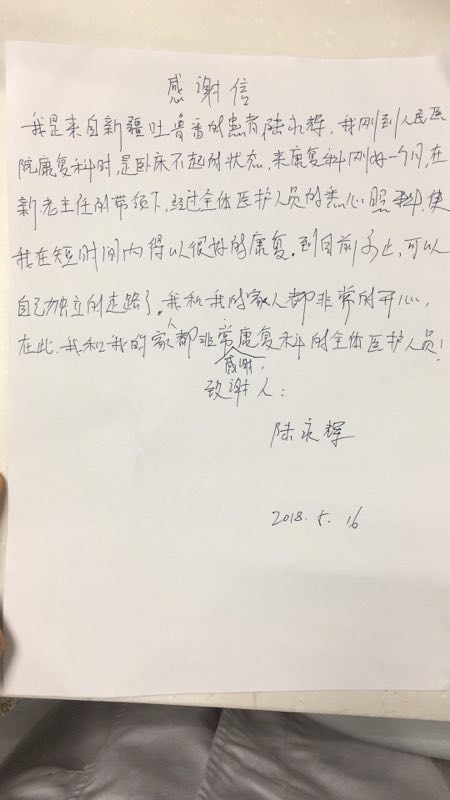 感谢信
我是来自新疆吐鲁番的患者陆永辉，我刚到人民医
院康复科时，是卧床不起的状态，来康复科刚好一个月，在
新老主任的带领下，经过全体医护人员的悉心照料，使
我在短时间内得以很好的康复。到目前为止，可以
自己独立的走路了。我和我的家人都非常的开心，
在此，我和我的家人都非常感谢，康复科的全体医护人员！
致谢人：
陆永辉
2018.5.16